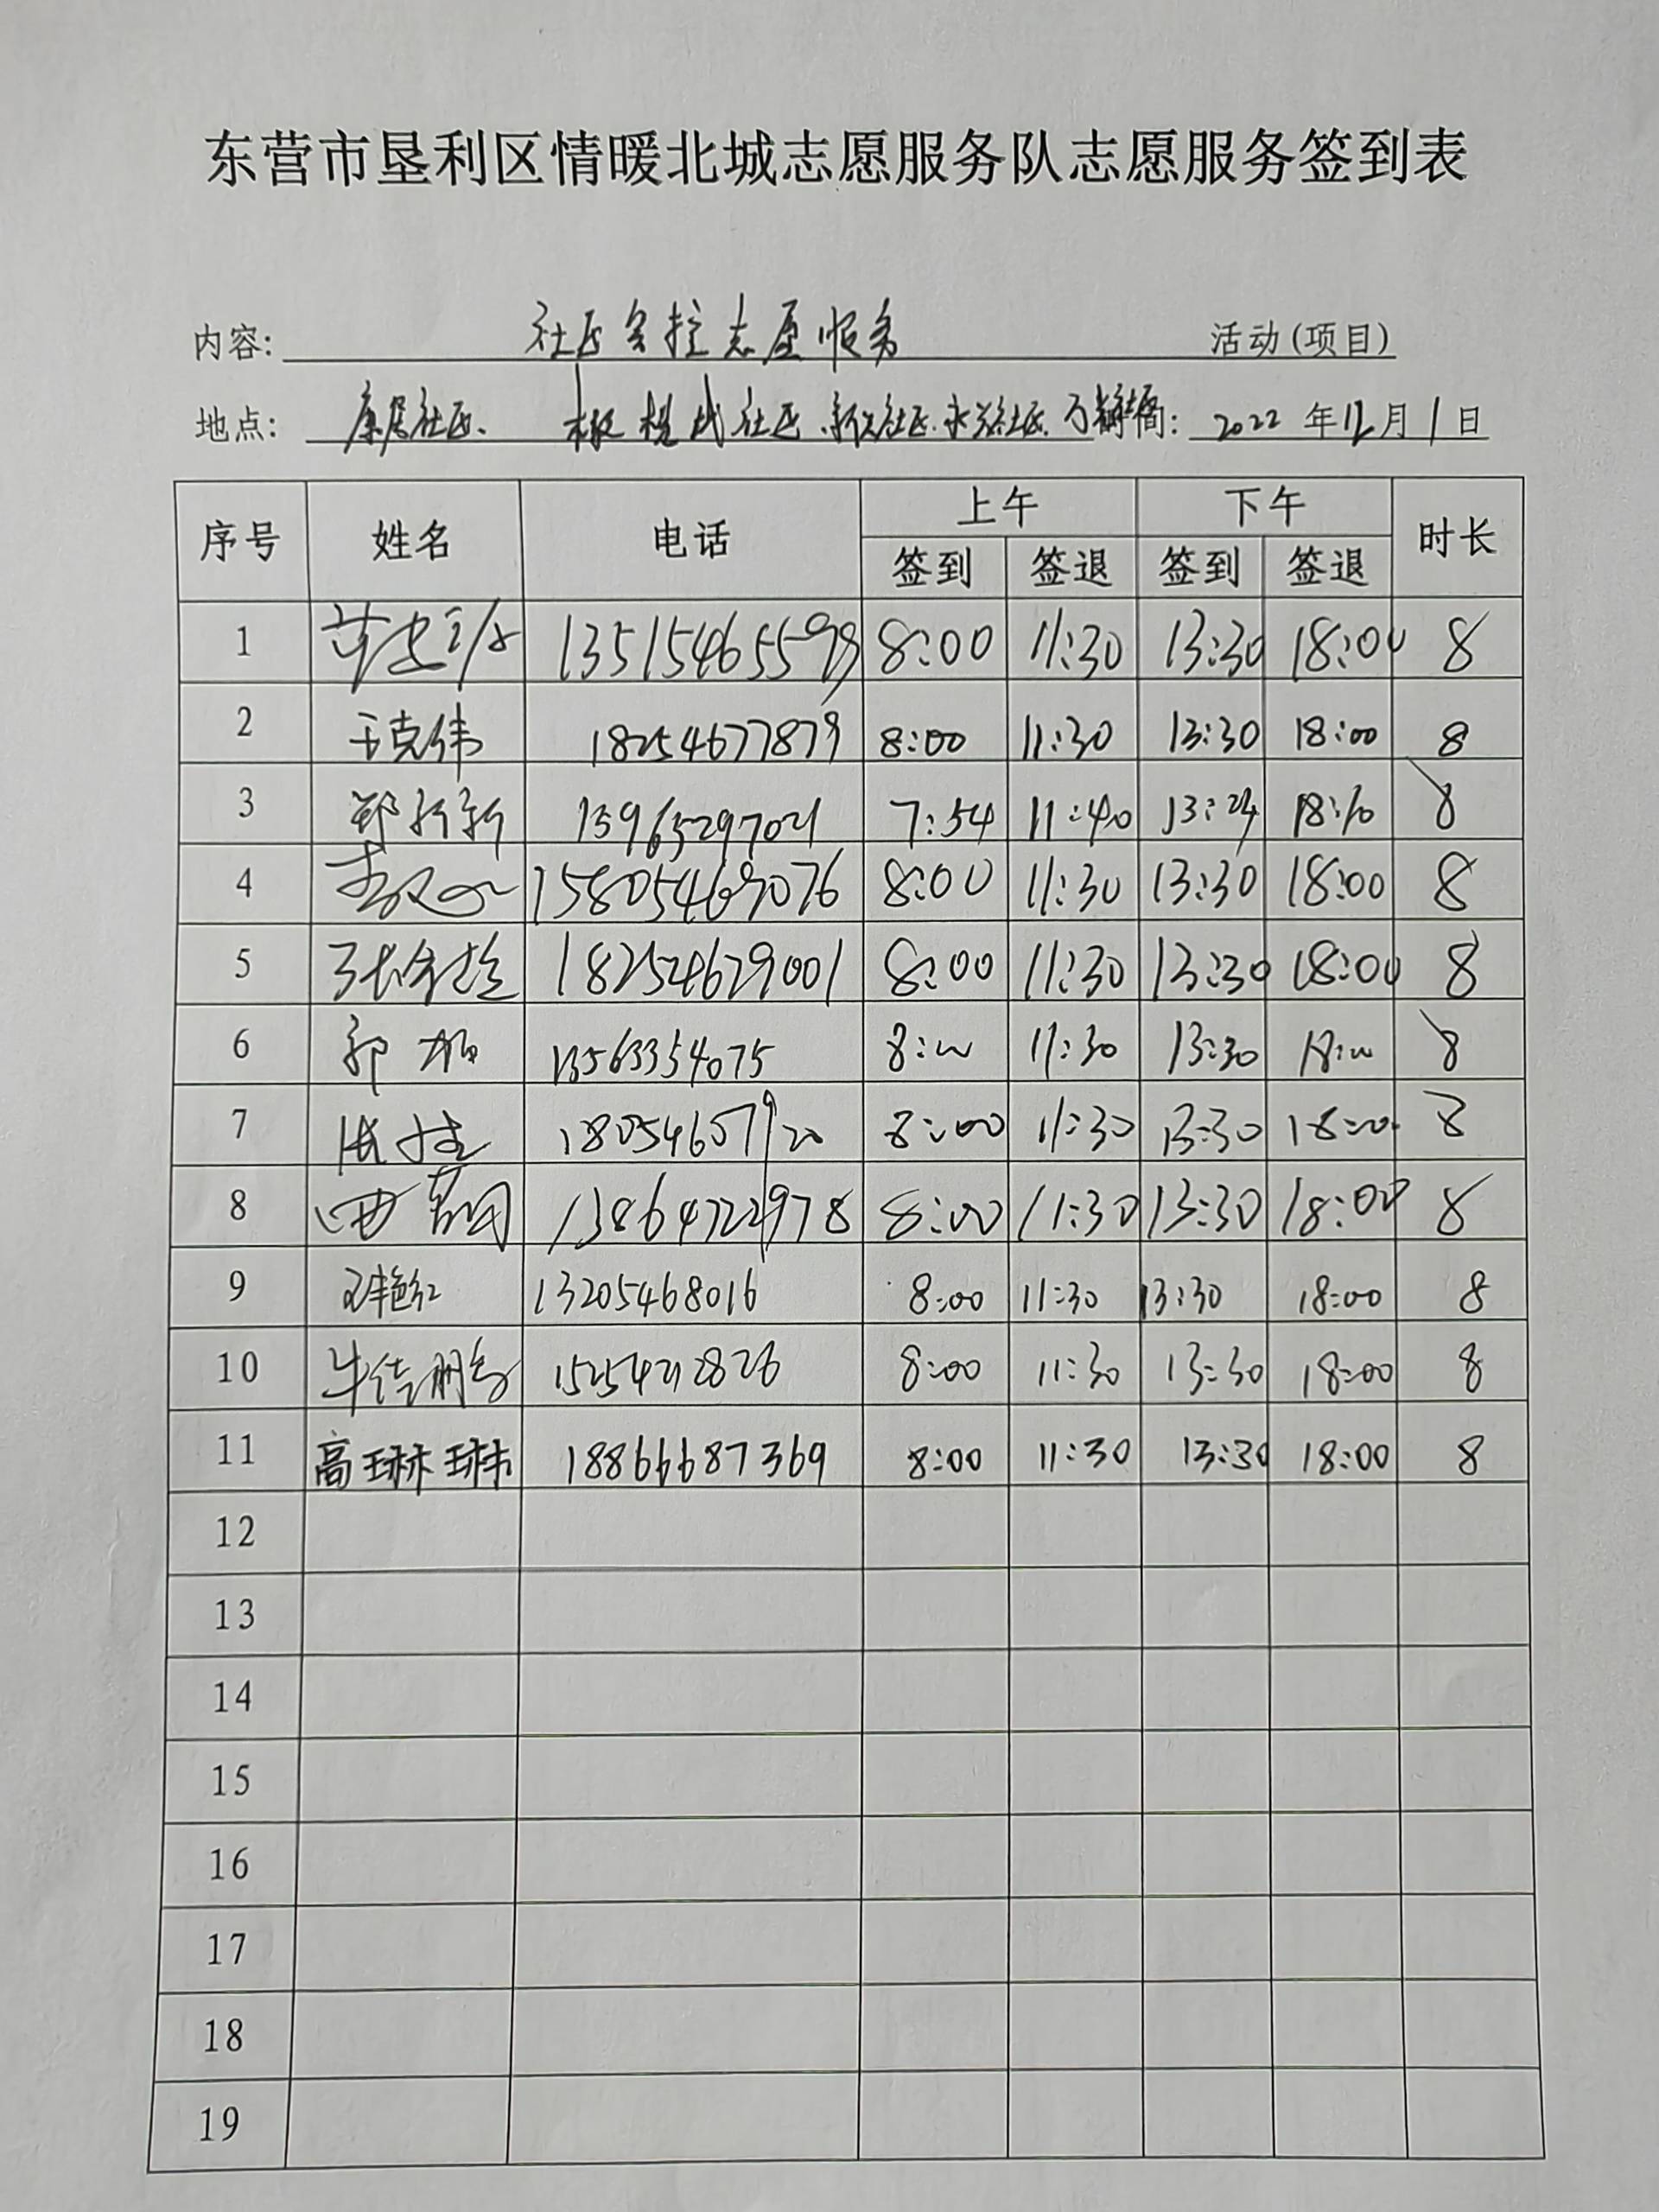 东营市垦利区情暖北城志愿服务队志愿服务签到表
内容: 社区 志愿服务 活动(项目)
地点: 康居社区、 社区、新兴社区、永兴社区、 时间: 2022 年 12 月 1 日
序号 姓名 电话 上午 下午 时长
签到 签退 签到 签退
1 13515465599 8:00 11:30 13:30 18:00 8
2 王克伟 18254677879 8:00 11:30 13:30 18:00 8
3 郑新新 7:54 11:40 13:24 18:10 8
4 15805469076 8:00 11:30 13:30 18:00 8
5 18254629001 8:00 11:30 13:30 18:00 8
6 郭 13563354075 8:00 11:30 13:30 18:00 8
7 18054657920 8:00 11:30 13:30 18:00 8
8 13864722978 8:00 11:30 13:30 18:00 8
9 艳红 13205468016 8:00 11:30 13:30 18:00 8
10 牛佳 8:00 11:30 13:30 18:00 8
11 高琳琳 18866687369 8:00 11:30 13:30 18:00 8
12
13
14
15
16
17
18
19